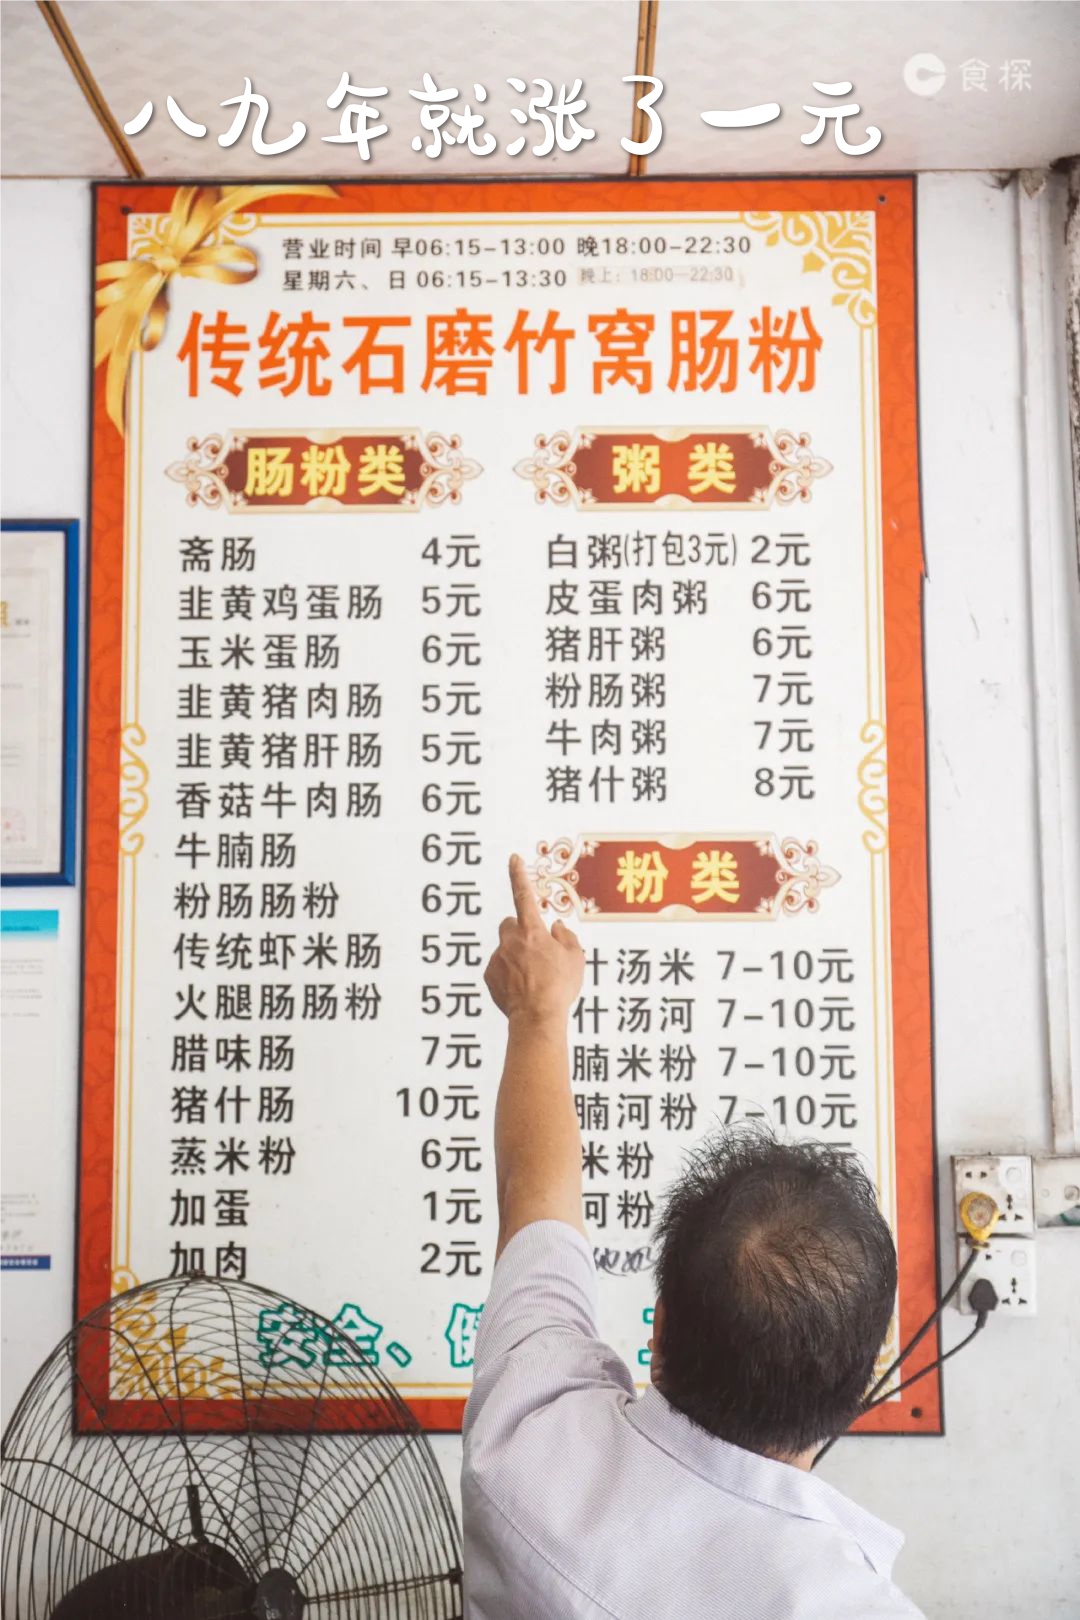 八九年就涨了一元
食探
营业时间 早06:15-13:00 晚18:00-22:30
星期六、日 06:15-13:30 晚上：18:00-22:30
传统石磨竹窝肠粉
肠粉类
斋肠 4元
韭黄鸡蛋肠 5元
玉米蛋肠 6元
韭黄猪肉肠 5元
韭黄猪肝肠 5元
香菇牛肉肠 6元
牛腩肠 6元
粉肠肠粉 6元
传统虾米肠 5元
火腿肠肠粉 5元
腊味肠 7元
猪什肠 10元
蒸米粉 6元
加蛋 1元
加肉 2元
粥类
白粥(打包3元) 2元
皮蛋肉粥 6元
猪肝粥 6元
粉肠粥 7元
牛肉粥 7元
猪什粥 8元
粉类
什汤米 7-10元
什汤河 7-10元
腩米粉 7-10元
腩河粉 7-10元
米粉
河粉
安全、